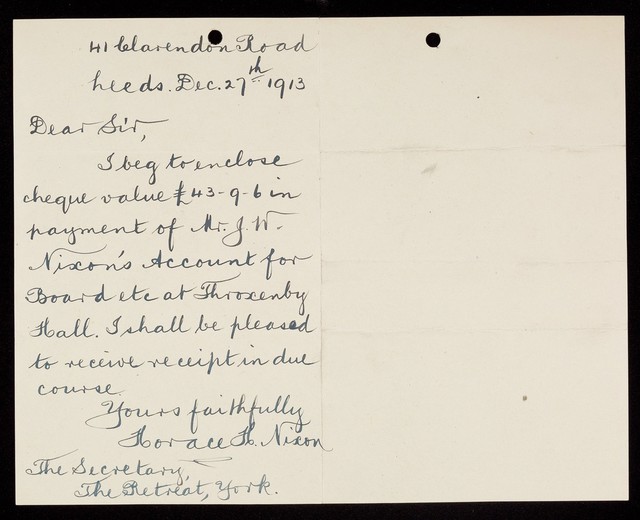 41 Clarendon Road
Leeds. Dec. 27th 1913
Dear Sir,
I beg to enclose
cheque value £43-9-6 in
payment of Mr. J. W.
Nixon's Account for
Board etc at Throxenby
Hall. I shall be pleased
to receive receipt in due
course.
Yours faithfully
Horace H. Nixon
The Secretary,
The Retreat, York.